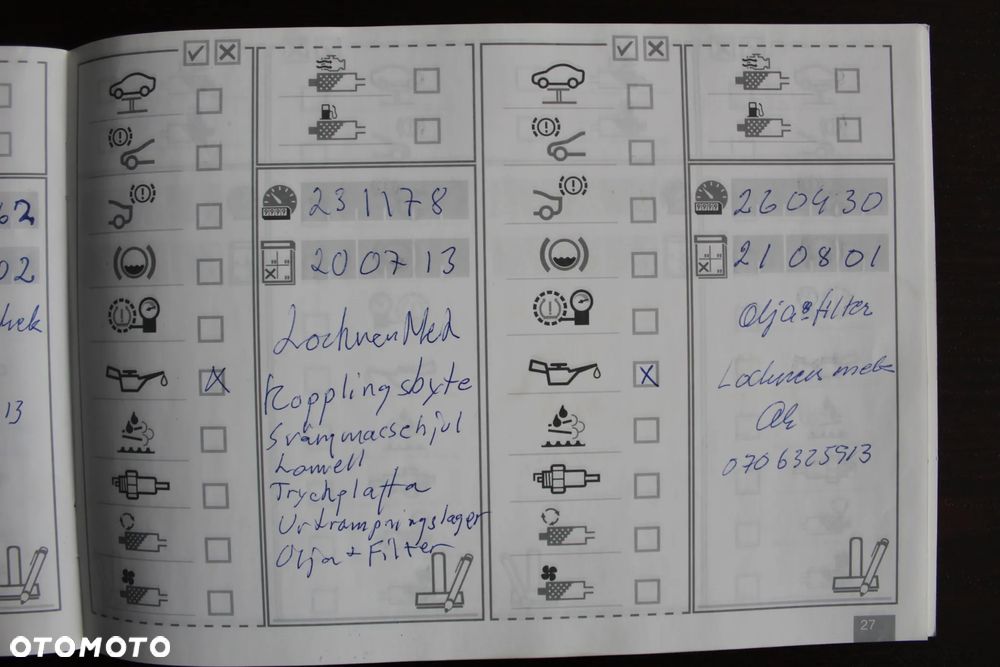 62
02
13
231178
200713
Lochnen Med
Kopplingsbyte
Svängmasschjul
Lamell
Tryckplatta
Urtrampningslager
Olja + Filter
260430
210801
Olja o filter
Lochnens mek
0706325913
27
OTOMOTO